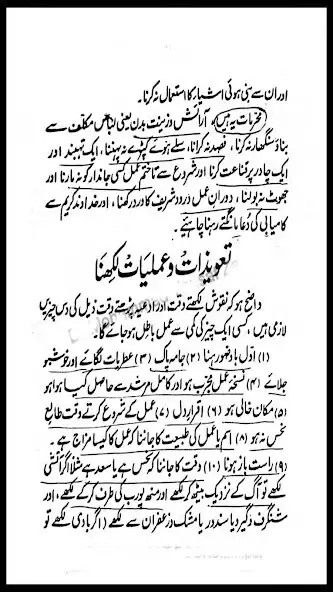 اور ان سے بنی ہوئی اشیاء کا استعمال نہ کرنا۔
محرمات یہ ہیں، آرائش و زینت بدن یعنی لباس مکلف سے
بناؤ سنگھار نہ کرنا، فصد نہ کرانا، سلے ہوئے کپڑے نہ پہننا، ایک تہبند اور
ایک چادر پر قناعت کرنا اور شروع سے تا ختم عمل کسی جاندار کو نہ مارنا اور
جھوٹ نہ بولنا، دوران عمل درود شریف کا ورد رکھنا، اور خداوند کریم سے
کامیابی کی دُعا مانگتے رہنا چاہیئے۔
تعویذات و عملیات لکھنا
واضح ہو کہ نقوش لکھتے وقت اور ادعیہ پڑھتے وقت ذیل کی دس چیزیں
لازمی ہیں، کسی ایک چیز کی کمی سے عمل باطل ہو جائے گا۔
(۱) اوّل باوضو رہنا (۲) جامہ پاک (۳) عطریات لگائے اور خوشبو
جلائے (۴) نسخۂ عمل مجرب ہو اور کامل مرشد سے حاصل کیا ہوا ہو
(۵) مکان خالی ہو (۶) اقرار دل (۷) عمل کے شروع کرتے وقت طالع
نحس نہ ہو (۸) اسم یا عمل کی طبیعت کا جاننا کہ عمل کا کیسا مزاج ہے۔
(۹) راست باز ہونا (۱۰) وقت کا جاننا کہ نحس ہے یا سعد ہے مثلاً اگر آتشی
لکھے تو آگ کے نزدیک بیٹھ کر لکھے اور منھ پورب کی طرف کر کے لکھے، اور
شنگرف و گیرو یا سندور یا مشک و زعفران سے لکھے (اگر بادی لکھے تو